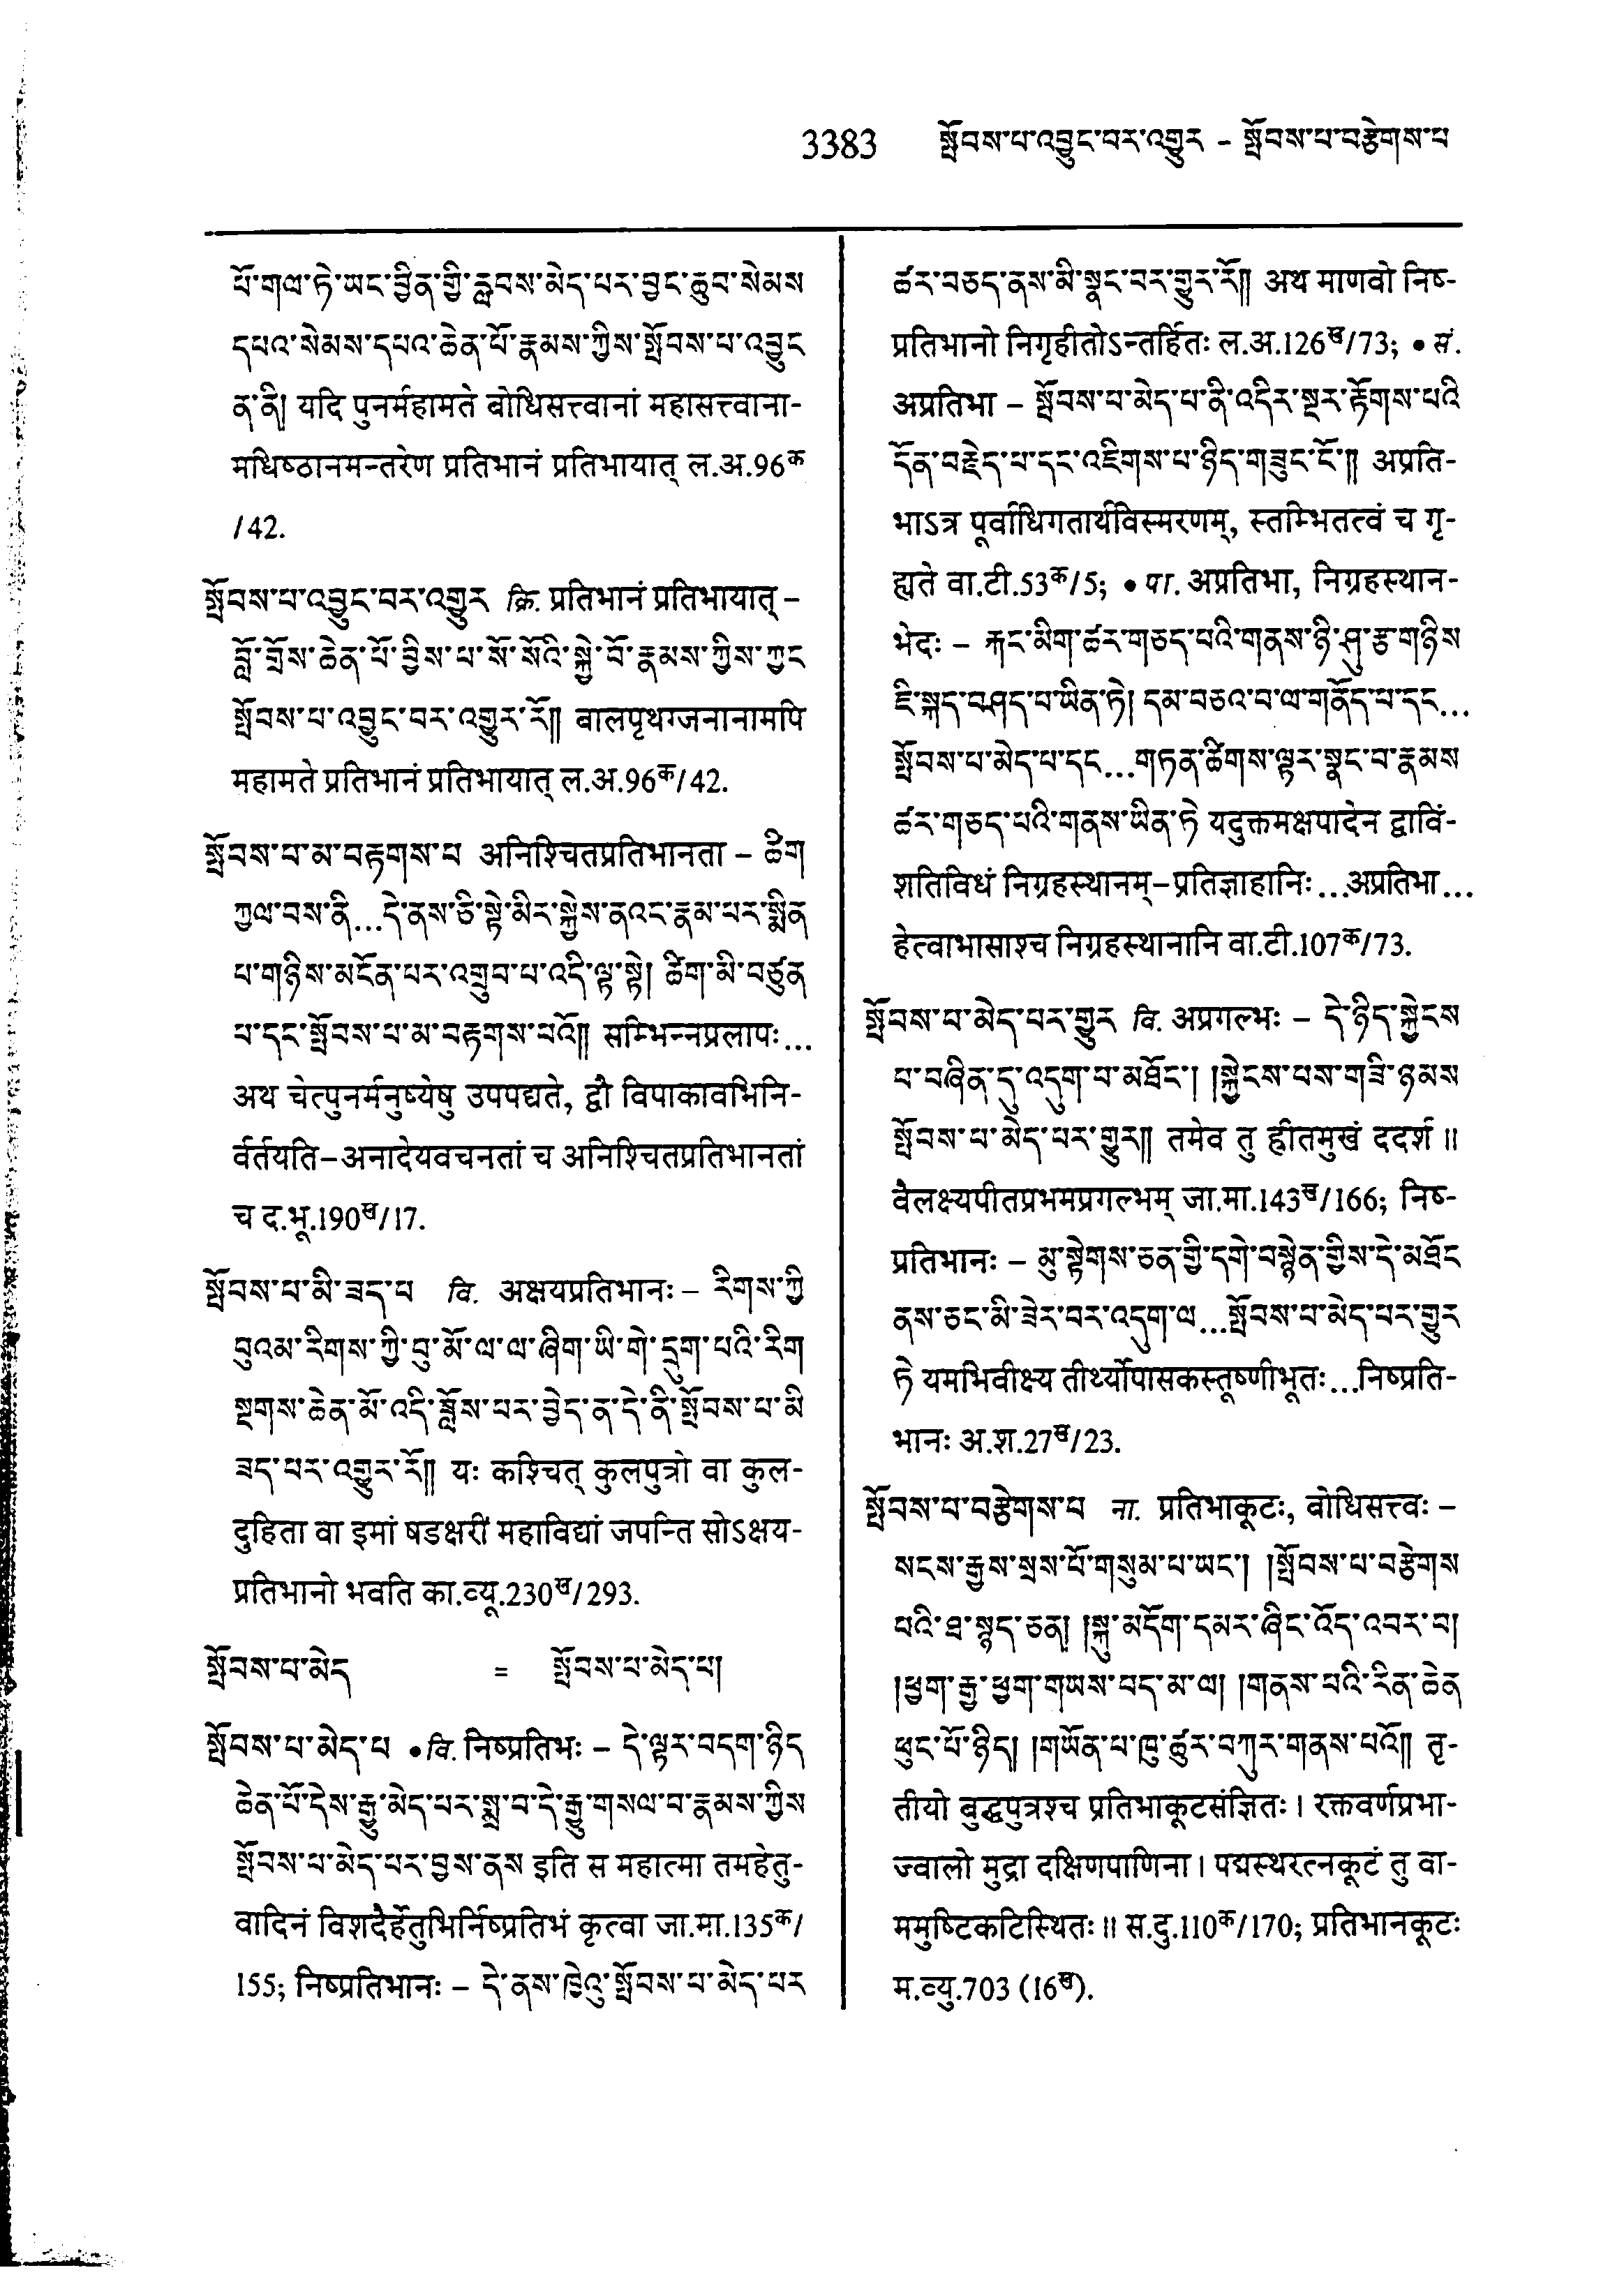 3383 སྤོབས་པ་འབྱུང་བར་འགྱུར - སྤོབས་པ་བརྩེགས་པ
པོ་གལ་ཏེ་ཡང་བྱིན་གྱི་རླབས་མེད་པར་བྱང་ཆུབ་སེམས
དཔའ་སེམས་དཔའ་ཆེན་པོ་རྣམས་ཀྱིས་སྤོབས་པ་འབྱུང
ན་ནི། यदि पुनर्महामते बोधिसत्त्वानां महासत्त्वाना-
मधिष्ठानमन्तरेण प्रतिभानं प्रतिभायात् ल.अ.96क
/42.
སྤོབས་པ་འབྱུང་བར་འགྱུར क्रि. प्रतिभानं प्रतिभायात् –
བློ་གྲོས་ཆེན་པོ་བྱིས་པ་སོ་སོའི་སྐྱེ་བོ་རྣམས་ཀྱིས་ཀྱང
སྤོབས་པ་འབྱུང་བར་འགྱུར་རོ།། बालपृथग्जनानामपि
महामते प्रतिभानं प्रतिभायात् ल.अ.96क/42.
སྤོབས་པ་མ་བརྟགས་པ अनिश्चितप्रतिभानता – ཚིག
ཀྱལ་བས་ནི...དེ་ནས་ཅི་སྟེ་མིར་སྐྱེས་ནའང་རྣམ་པར་སྨིན
པ་གཉིས་མངོན་པར་འགྲུབ་པ་འདི་ལྟ་སྟེ། ཚིག་མི་བཙུན
པ་དང་སྤོབས་པ་མ་བརྟགས་པའོ།། सम्भिन्नप्रलापः...
अथ चेत्पुनर्मनुष्येषु उपपद्यते, द्वौ विपाकावभिनि-
र्वर्तयति–अनादेयवचनतां च अनिश्चितप्रतिभानतां
च द.भू.190ख/17.
སྤོབས་པ་མི་ཟད་པ वि. अक्षयप्रतिभानः – རིགས་ཀྱི
བུའམ་རིགས་ཀྱི་བུ་མོ་ལ་ལ་ཞིག་ཡི་གེ་དྲུག་པའི་རིག
སྔགས་ཆེན་མོ་འདི་བཟློས་པར་བྱེད་ན་དེ་ནི་སྤོབས་པ་མི
ཟད་པར་འགྱུར་རོ།། यः कश्चित् कुलपुत्रो वा कुल-
दुहिता वा इमां षडक्षरीं महाविद्यां जपन्ति सोऽक्षय-
प्रतिभानो भवति का.व्यू.230ख/293.
སྤོབས་པ་མེད = སྤོབས་པ་མེད་པ།
སྤོབས་པ་མེད་པ • वि. निष्प्रतिभः – དེ་ལྟར་བདག་ཉིད
ཆེན་པོ་དེས་རྒྱུ་མེད་པར་སྨྲ་བ་དེ་རྒྱུ་གསལ་བ་རྣམས་ཀྱིས
སྤོབས་པ་མེད་པར་བྱས་ནས इति स महात्मा तमहेतु-
वादिनं विशदैर्हेतुभिर्निष्प्रतिभं कृत्वा जा.मा.135क/
155; निष्प्रतिभानः – དེ་ནས་ཁྱེའུ་སྤོབས་པ་མེད་པར
ཚར་བཅད་ནས་མི་སྣང་བར་གྱུར་རོ།། अथ माणवो निष्-
प्रतिभानो निगृहीतोऽन्तर्हितः ल.अ.126ख/73; • सं.
अप्रतिभा – སྤོབས་པ་མེད་པ་ནི་འདིར་སྔར་རྟོགས་པའི
དོན་བརྗེད་པ་དང་འཇིགས་པ་ཉིད་གཟུང་ངོ་།། अप्रति-
भाऽत्र पूर्वाधिगतार्थविस्मरणम्, स्तम्भितत्वं च गृ-
ह्यते वा.टी.53क/5; • पा. अप्रतिभा, निग्रहस्थान-
भेदः – རྐང་མིག་ཚར་གཅད་པའི་གནས་ཉི་ཤུ་རྩ་གཉིས
ཇི་སྐད་བཤད་པ་ཡིན་ཏེ། དམ་བཅའ་བ་ལ་གནོད་པ་དང...
སྤོབས་པ་མེད་པ་དང...གཏན་ཚིགས་ལྟར་སྣང་བ་རྣམས
ཚར་གཅད་པའི་གནས་ཡིན་ཏེ यदुक्तमक्षपादेन द्वाविं-
शतिविधं निग्रहस्थानम्–प्रतिज्ञाहानिः...अप्रतिभा...
हेत्वाभासाश्च निग्रहस्थानानि वा.टी.107क/73.
སྤོབས་པ་མེད་པར་གྱུར वि. अप्रगल्भः – དེ་ཉིད་སྐྱེངས
པ་བཞིན་དུ་འདུག་པ་མཐོང་། །སྐྱེངས་པས་གཟི་ཉམས
སྤོབས་པ་མེད་པར་གྱུར།། तमेव तु ह्रीतमुखं ददर्श ॥
वैलक्ष्यपीतप्रभमप्रगल्भम् जा.मा.143ख/166; निष्-
प्रतिभानः – མུ་སྟེགས་ཅན་གྱི་དགེ་བསྙེན་གྱིས་དེ་མཐོང
ནས་ཅང་མི་ཟེར་བར་འདུག་ལ...སྤོབས་པ་མེད་པར་གྱུར
ཏེ यमभिवीक्ष्य तीर्थ्योपासकस्तूष्णीभूतः...निष्प्रति-
भानः अ.श.27ख/23.
སྤོབས་པ་བརྩེགས་པ ना. प्रतिभाकूटः, बोधिसत्त्वः –
སངས་རྒྱས་སྲས་པོ་གསུམ་པ་ཡང་། །སྤོབས་པ་བརྩེགས
པའི་ཐ་སྙད་ཅན། །སྐུ་མདོག་དམར་ཞིང་འོད་འབར་བ།
།ཕྱག་རྒྱ་ཕྱག་གཡས་པད་མ་ལ། །གནས་པའི་རིན་ཆེན
ཕུང་པོ་ཉིད། །གཡོན་པ་ཁུ་ཚུར་བཀུར་གནས་པའོ།། तृ-
तीयो बुद्धपुत्रश्च प्रतिभाकूटसंज्ञितः । रक्तवर्णप्रभा-
ज्वालो मुद्रा दक्षिणपाणिना । पद्मस्थरत्नकूटं तु वा-
ममुष्टिकटिस्थितः ॥ स.दु.110क/170; प्रतिभानकूटः
म.व्यु.703 (16ख).